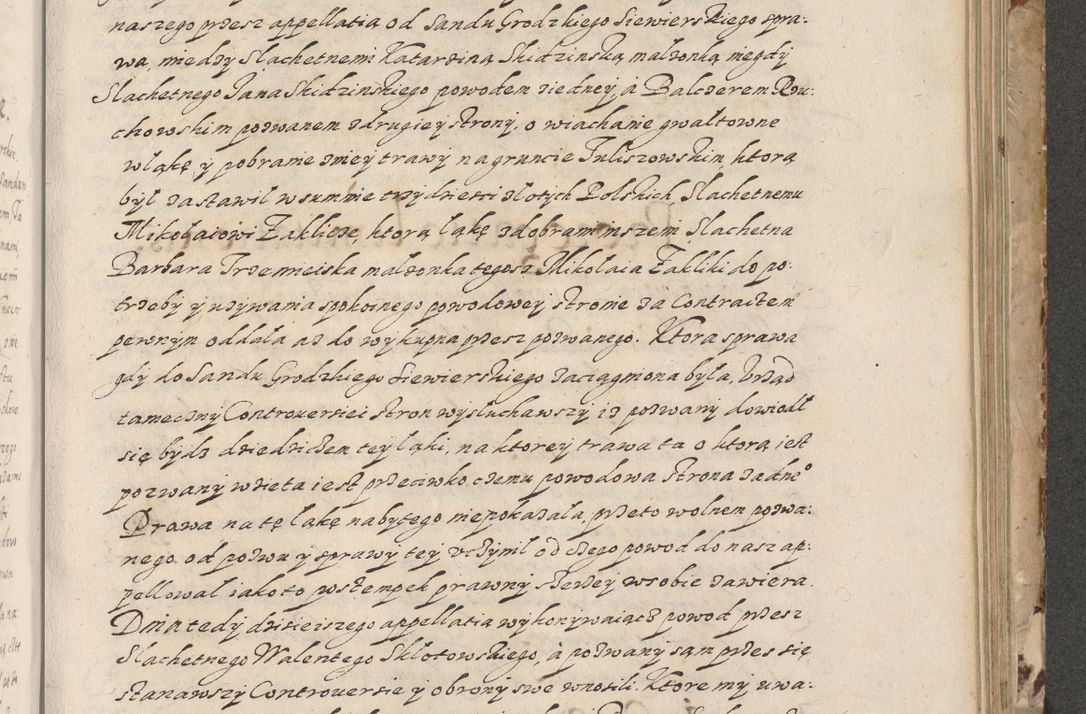 naszego przez appellatią od Sandu Grodzkiego Siewierskiego spra:
wa, miedzy Slachetnemi Katarziną Skidzinską malzonką niegdy
Slachetnego Jana Skidzinskiego powodem ziedney, à Balczerem Rou:
chowskim pozwanem zdrugiey strony, o wiachanie gwaltowne
w łąkę y pobranie zniey trawy na gruncie Tuliszowskim, ktorą
był zastawil w summie trzydziesci złotych Polskich, Slachetnemu
Mikołaiowi Zaklice, ktorą łąkę zdobram inszemi Slachetna
Barbara Trzemieiska malzonka tegosz Mikołaia Zakliki do po:
trzeby y uzywania spokoinego powodowey stronie za Contractem
pewnym oddala aż do wykupna przez pozwanego. Ktora sprawa
gdy do Sandu Grodzkiego Siewierskiego zaciągniona była, Vrząd
tameczny Controuersiei stron wysłuchawszy iż pozwany dowiodł
się bydz dziedzicem tey łąki, na ktorey trawa ta o ktorą iest
pozwany wzieta iest przeciwko czemu powodowa strona żadne°
Prawa na tę łąkę nabytego niepokazala, przeto wolnem pozwa:
nego od pozwu y sprawy tey vczynil od czego powod do nas ap:
pellował iako to postempek prawny szerzey w sobie zawiera.
Dnia tedy dzisieiszego appellatią wykonywaiącz powod przez
Slachetnego Walentego Skłotowskiego, à pozwany sąm przes się
stanawszy Controuersie y obrony swe wnosili. Ktore my uwa: